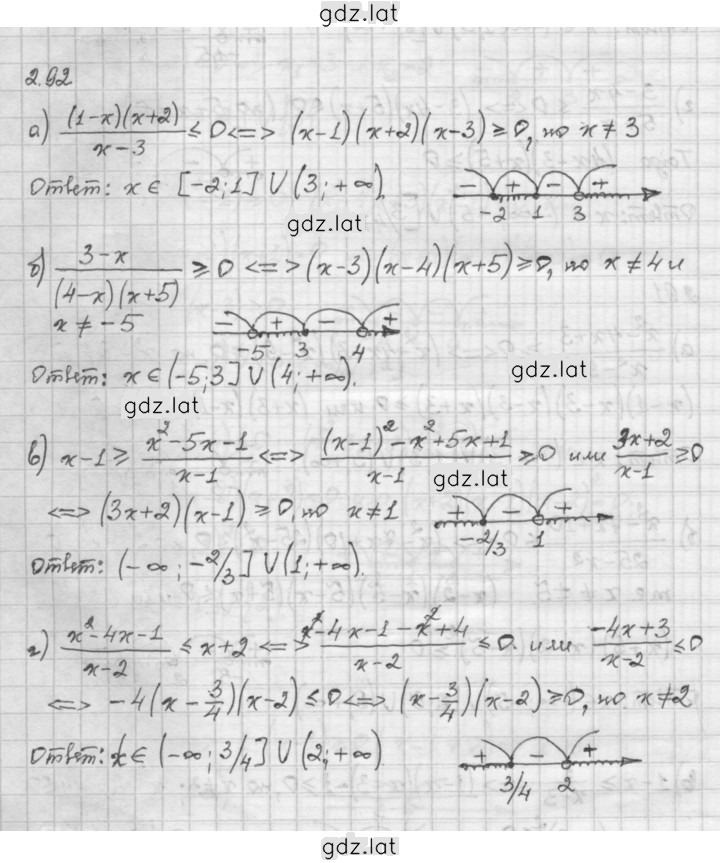 gdz.lat
2.92
а) (1-x)(x+2)/(x-3) ≤ 0 <=> (x-1)(x+2)(x-3) ≥ 0, но x ≠ 3
Ответ: x ∈ [-2; 1] ∪ (3; +∞).
- + - +
-2 1 3
gdz.lat
б) (3-x)/((4-x)(x+5)) ≥ 0 <=> (x-3)(x-4)(x+5) ≥ 0, но x ≠ 4 и
x ≠ -5
- + - +
-5 3 4
Ответ: x ∈ (-5; 3] ∪ (4; +∞).
gdz.lat
gdz.lat
в) x-1 ≥ (x²-5x-1)/(x-1) <=> ((x-1)²-x²+5x+1)/(x-1) ≥ 0 или (3x+2)/(x-1) ≥ 0
gdz.lat
<=> (3x+2)(x-1) ≥ 0, но x ≠ 1
+ - +
-2/3 1
Ответ: (-∞; -2/3] ∪ (1; +∞).
г) (x²-4x-1)/(x-2) ≤ x+2 <=> (x²-4x-1-x²+4)/(x-2) ≤ 0. или (-4x+3)/(x-2) ≤ 0
<=> -4(x-3/4)(x-2) ≤ 0 <=> (x-3/4)(x-2) ≥ 0, но x ≠ 2
Ответ: x ∈ (-∞; 3/4] ∪ (2; +∞)
+ - +
3/4 2
gdz.lat